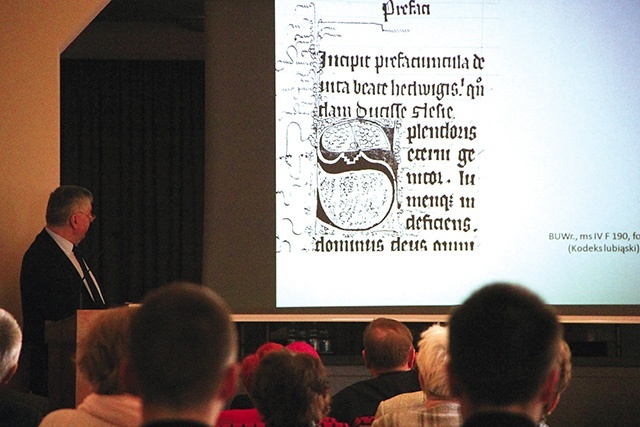 Prefaci
Incipit prefaciuncula de
uita beate hedwigis. qn̄
dam ducisse slesie.
Splendoris
eterni ge
nitor. lu
menq; in
deficiens.
dominus deus omni
BUWr., ms IV F 190, fo
(Kodeks lubiąski)